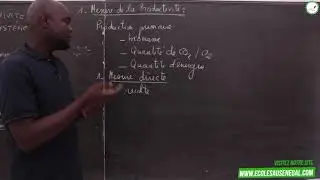 1. Mesure de la Productivité:
VIVITE
SYSTEME
Production primaire
- biomasse
- Quantité de O₂ / CO₂
- Quantité d'énergie
1. Mesure directe
récolte
VISITEZ NOTRE SITE
WWW.ECOLESAUSENEGAL.COM